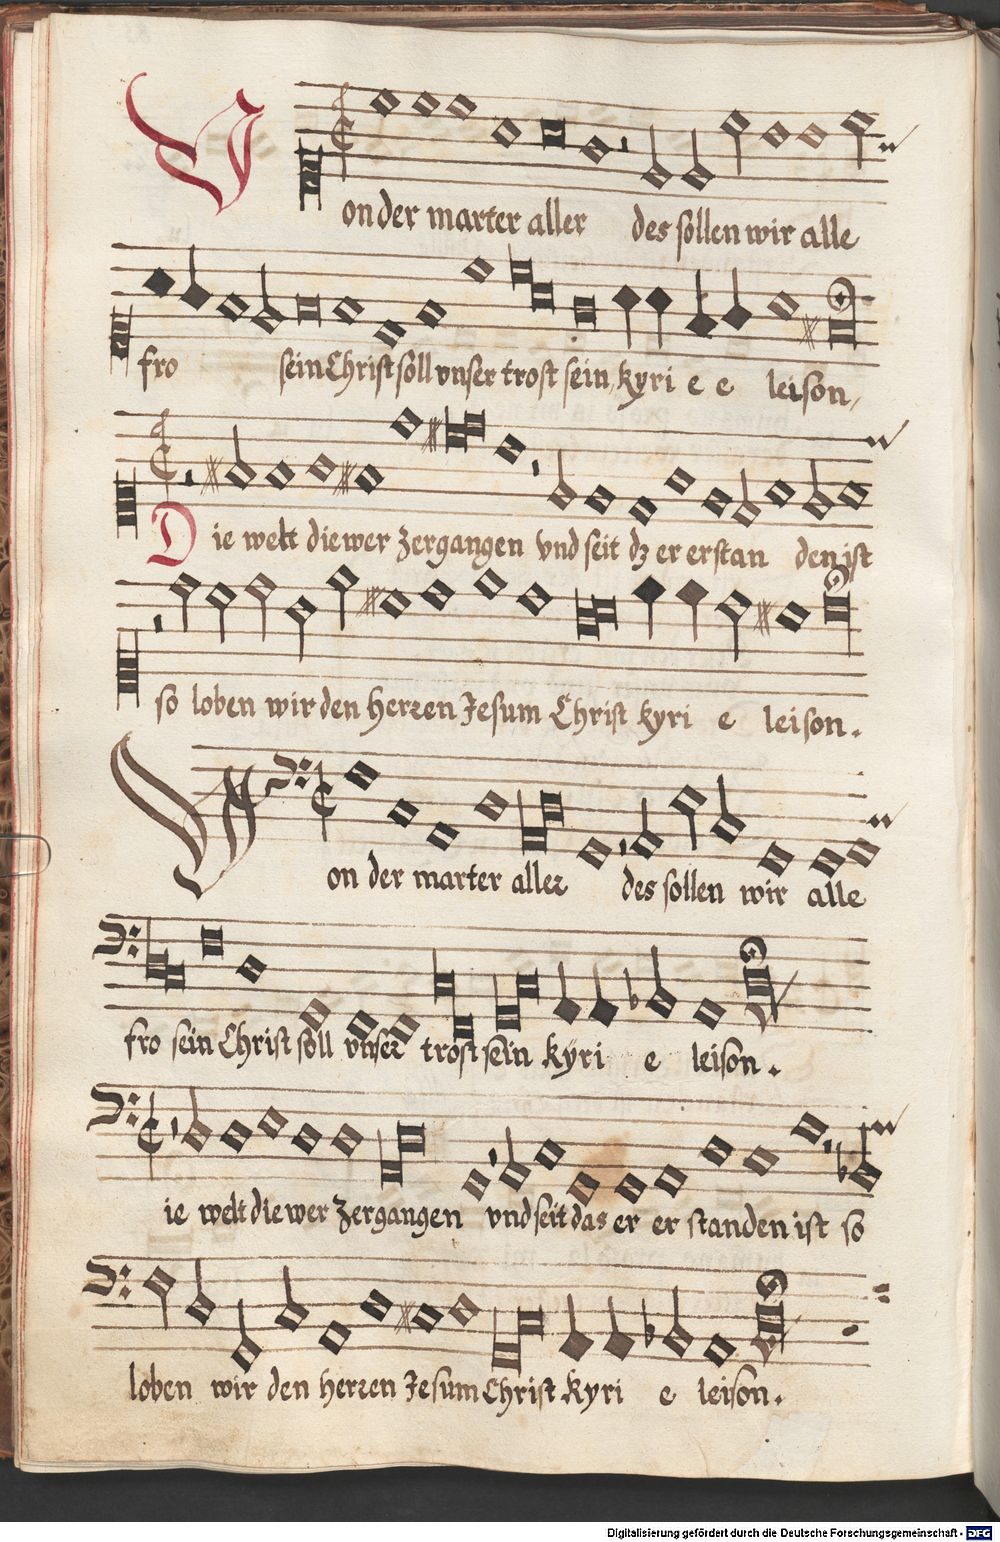 Von der marter aller des sollen wir alle
fro sein Christ soll vnser trost sein, kyri e e leison,
Die welt die wer zergangen vnd seit dz er erstan den ist
so loben wir den herren Jesum Christ kyri e leison.
Von der marter aller des sollen wir alle
fro sein Christ soll vnser trost sein kyri e leison.
ie welt die wer zergangen vnd seit das er er standen ist so
loben wir den herren Jesum Christ Kyri e leison.
Digitalisierung gefördert durch die Deutsche Forschungsgemeinschaft - DFG